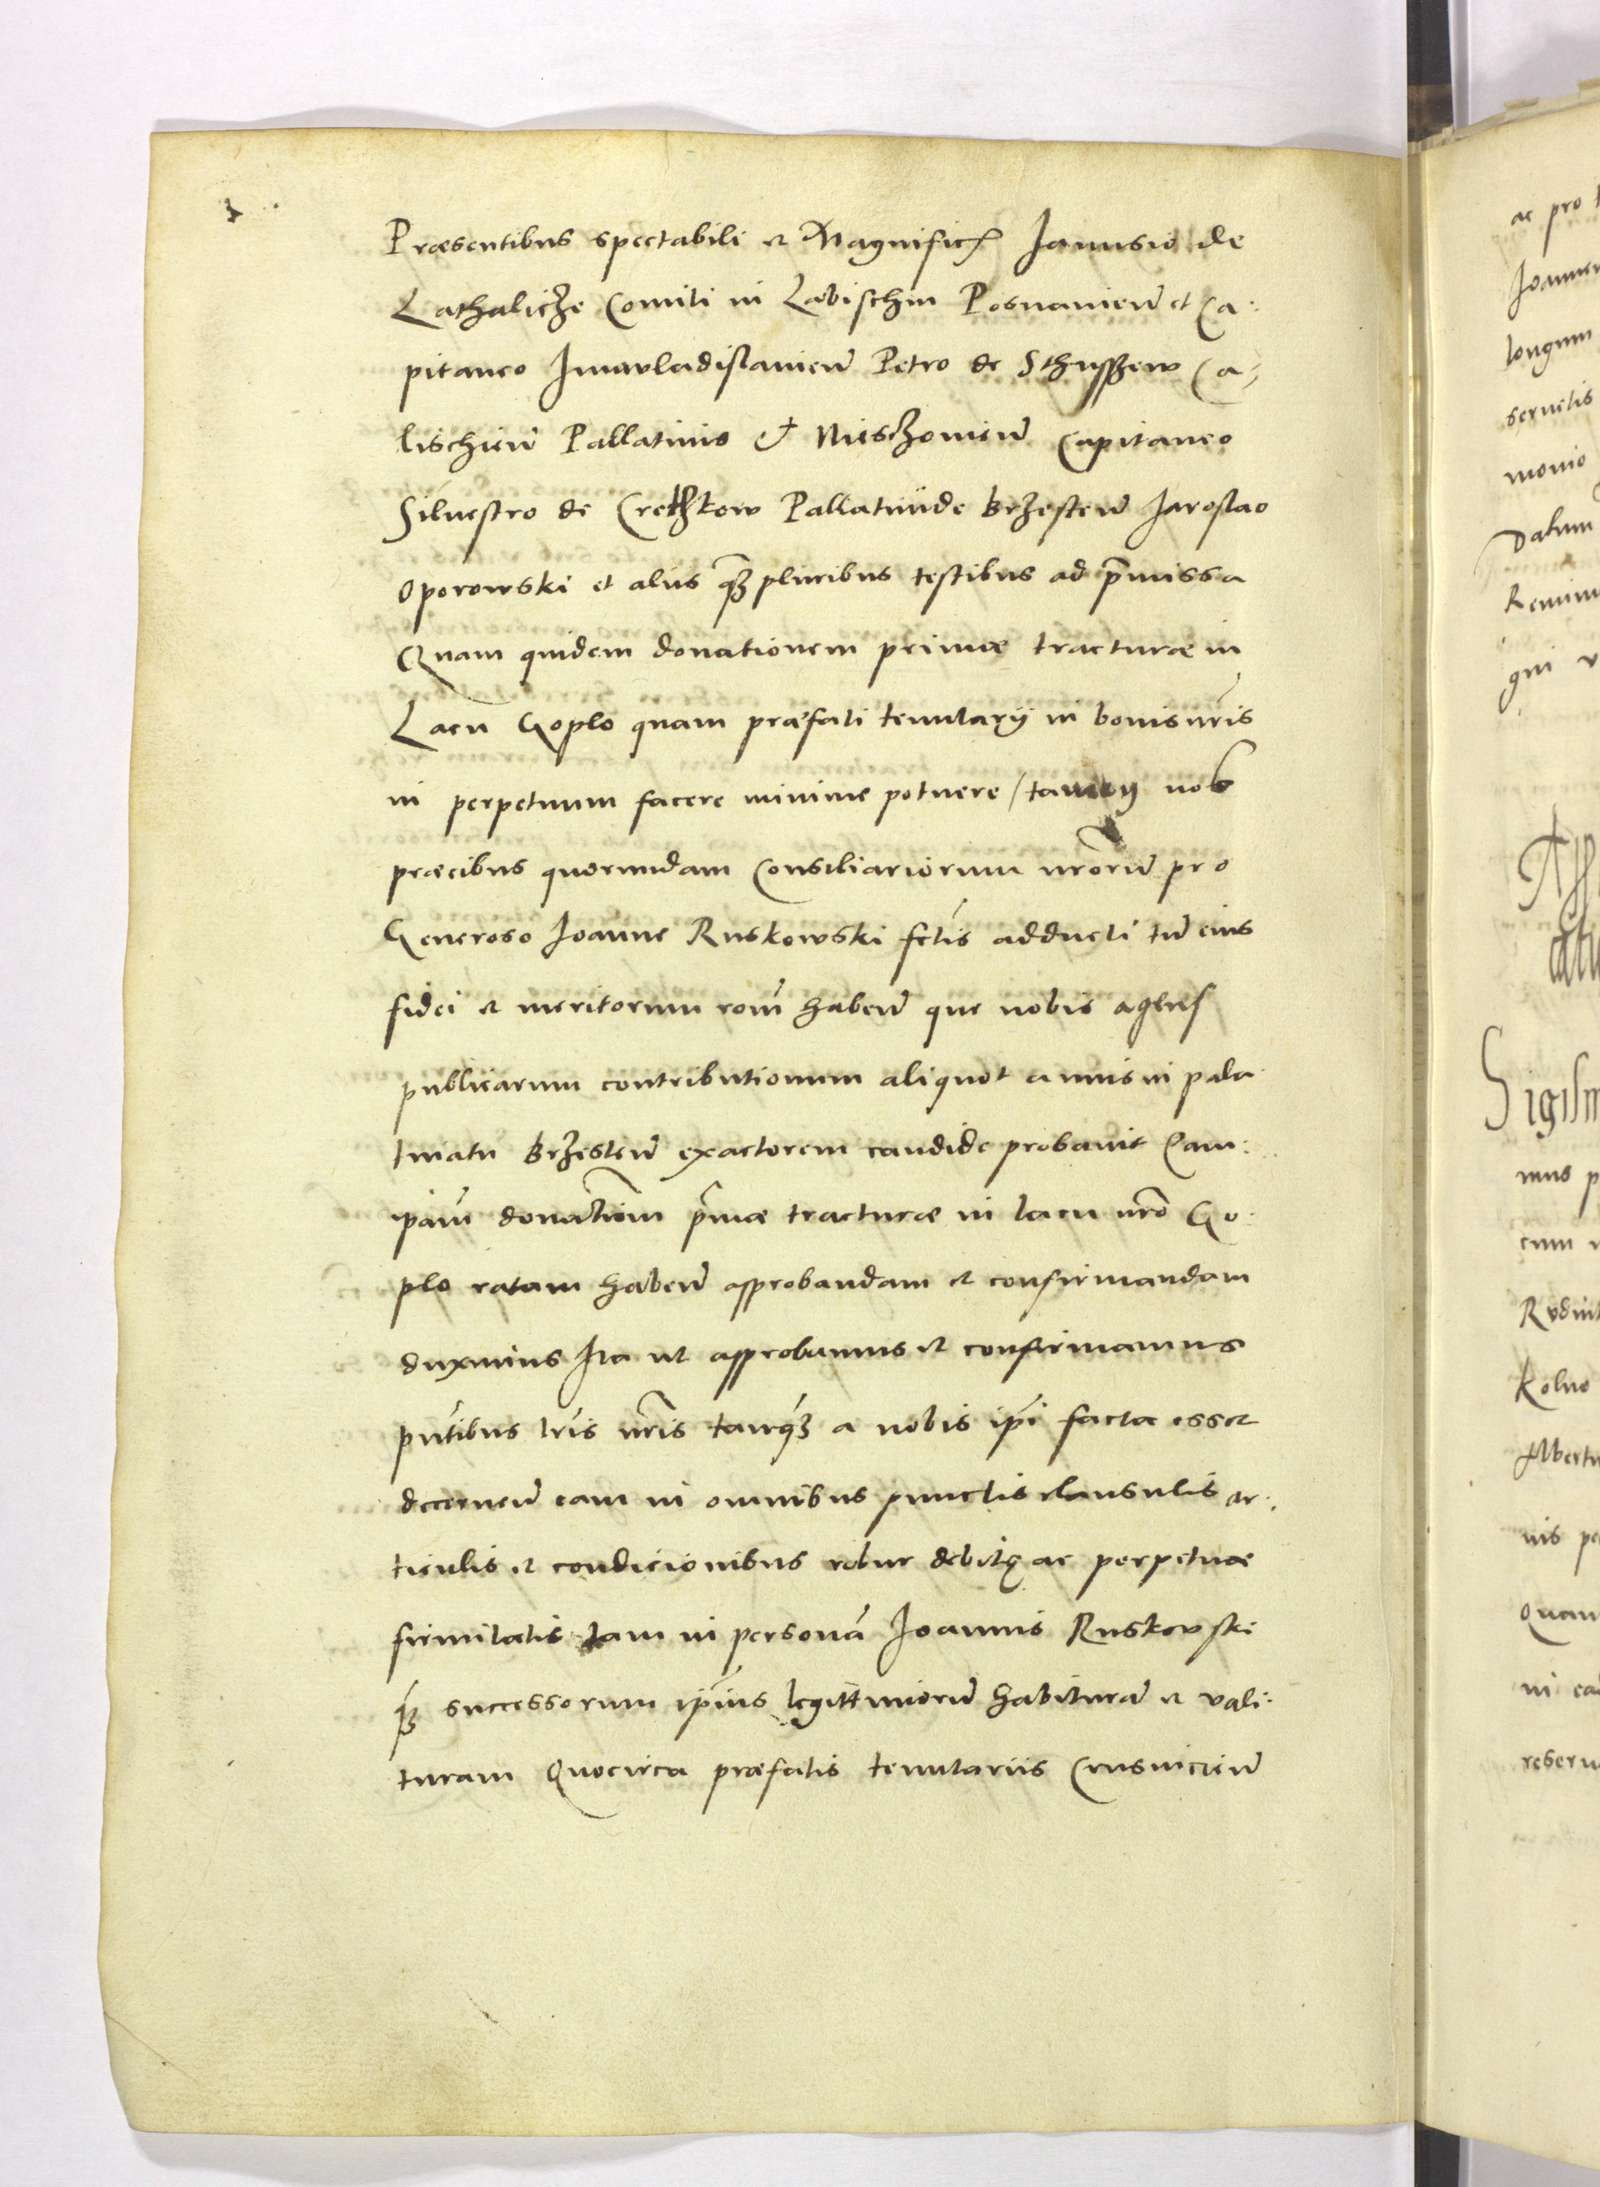 Præsentibus spectabili et Magnificis Janusio de
Lathalicze Comiti in Labischin Posnanien̄ et Ca:
pitaneo Junivladislauien̄ Petro de Sthuss
ew Ca,
lischien̄ Pallatinis et Nieschouien̄ Capitaneo
Siluestro de Crethkow Pallatinide Brzesten̄ Jaroslao
Oporowski et alijs q̄ȝ pluribus testibus ad p̄missa
Quam quidem donationem primæ tracturæ in
Lacu Goplo quam præfati tenutarij in bonis nr̄is
in perpetuum facere minime potuere / tamen nob
præcibus quorundam Consiliariorum nr̄oru̅ pro
Generoso Joanne Ruskowski fc̄tis adducti tu̅ eius
fidei et meritorum ron̄ haben̄ que nobis
publicarum contributionum aliquot annis in pala
tinatu Brzesten̄ exactorem candide probauit Eam:
ip̄am donatio̅m p̄mæ tracturæ in lacu nr̄o Go:
plo ratam haben̄ approbandam et confirmandam
duximus Ita ut approbamus et confirmamus
pn̄tibus lr̄is nr̄is tanq̄ȝ a nobis ip̄i facta esset
decernen̄ eam in omnibus punctis clausulis ar:
ticulis et condicionibus robur debitę ac perpetuæ
firmitatis tam in persona̅ Joannis Ruskowski
q̄ȝ successorum ip̄ius legittimioru̅ habitura̅ et vali:
turam Quocirca præfatis tenutariis Crusuicien̄
ac pro
Joannem
longum
seruetis
monio
Datum
qui
Sigism
mus p
cum
Kolno
Albertu
nis pe
Quam
in ea
reseru